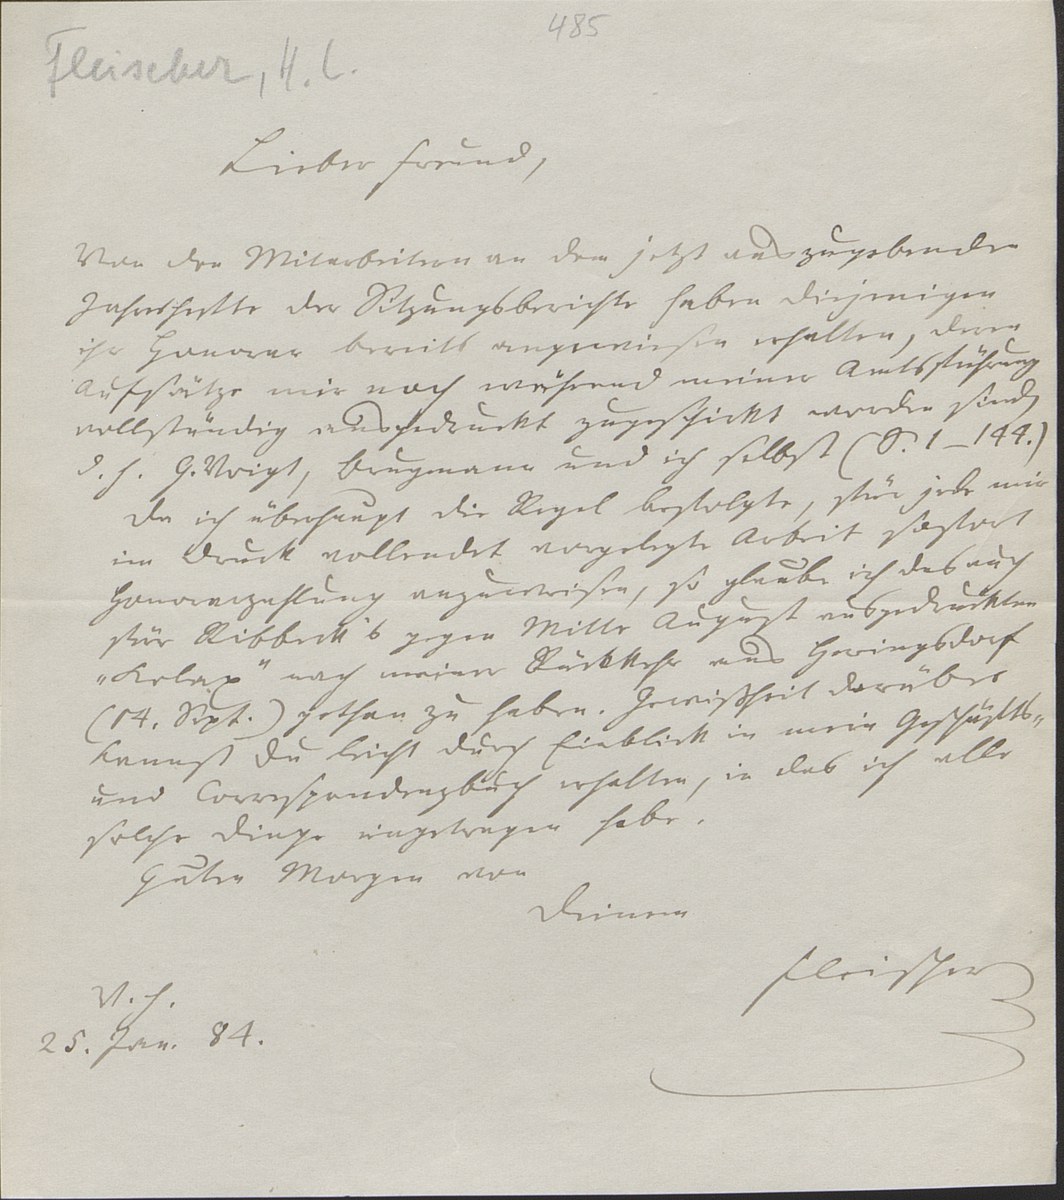 485
Fleischer, H. L.
Lieber Freund,
Von den Mitarbeitern an dem jetzt auszugebenden
Jahreshefte der Sitzungsberichte haben diejenigen
ihr Honorar bereits angewiesen erhalten, deren
Aufsätze mir noch während meiner Amtsführung
vollständig ausgedruckt zugeschickt worden sind,
d. h. G. Voigt, Brugmann und ich selbst (S. 1–144.)
Da ich überhaupt die Regel befolgte, für jede mir
im Druck vollendet vorgelegte Arbeit sofort
Honorarzahlung anzuweisen, so glaube ich das auch
für Ribbeck's gegen Mitte August ausgedruckten
„Kolax" nach meiner Rückkehr aus Heringsdorf
(14. Sept.) gethan zu haben. Gewißheit darüber
kannst Du leicht durch Einblick in mein Geschäfts-
und Correspondenzbuch erhalten, in das ich alle
solche Dinge eingetragen habe.
Guten Morgen von
Deinem
Fleischer
V. H.
25. Jan. 84.